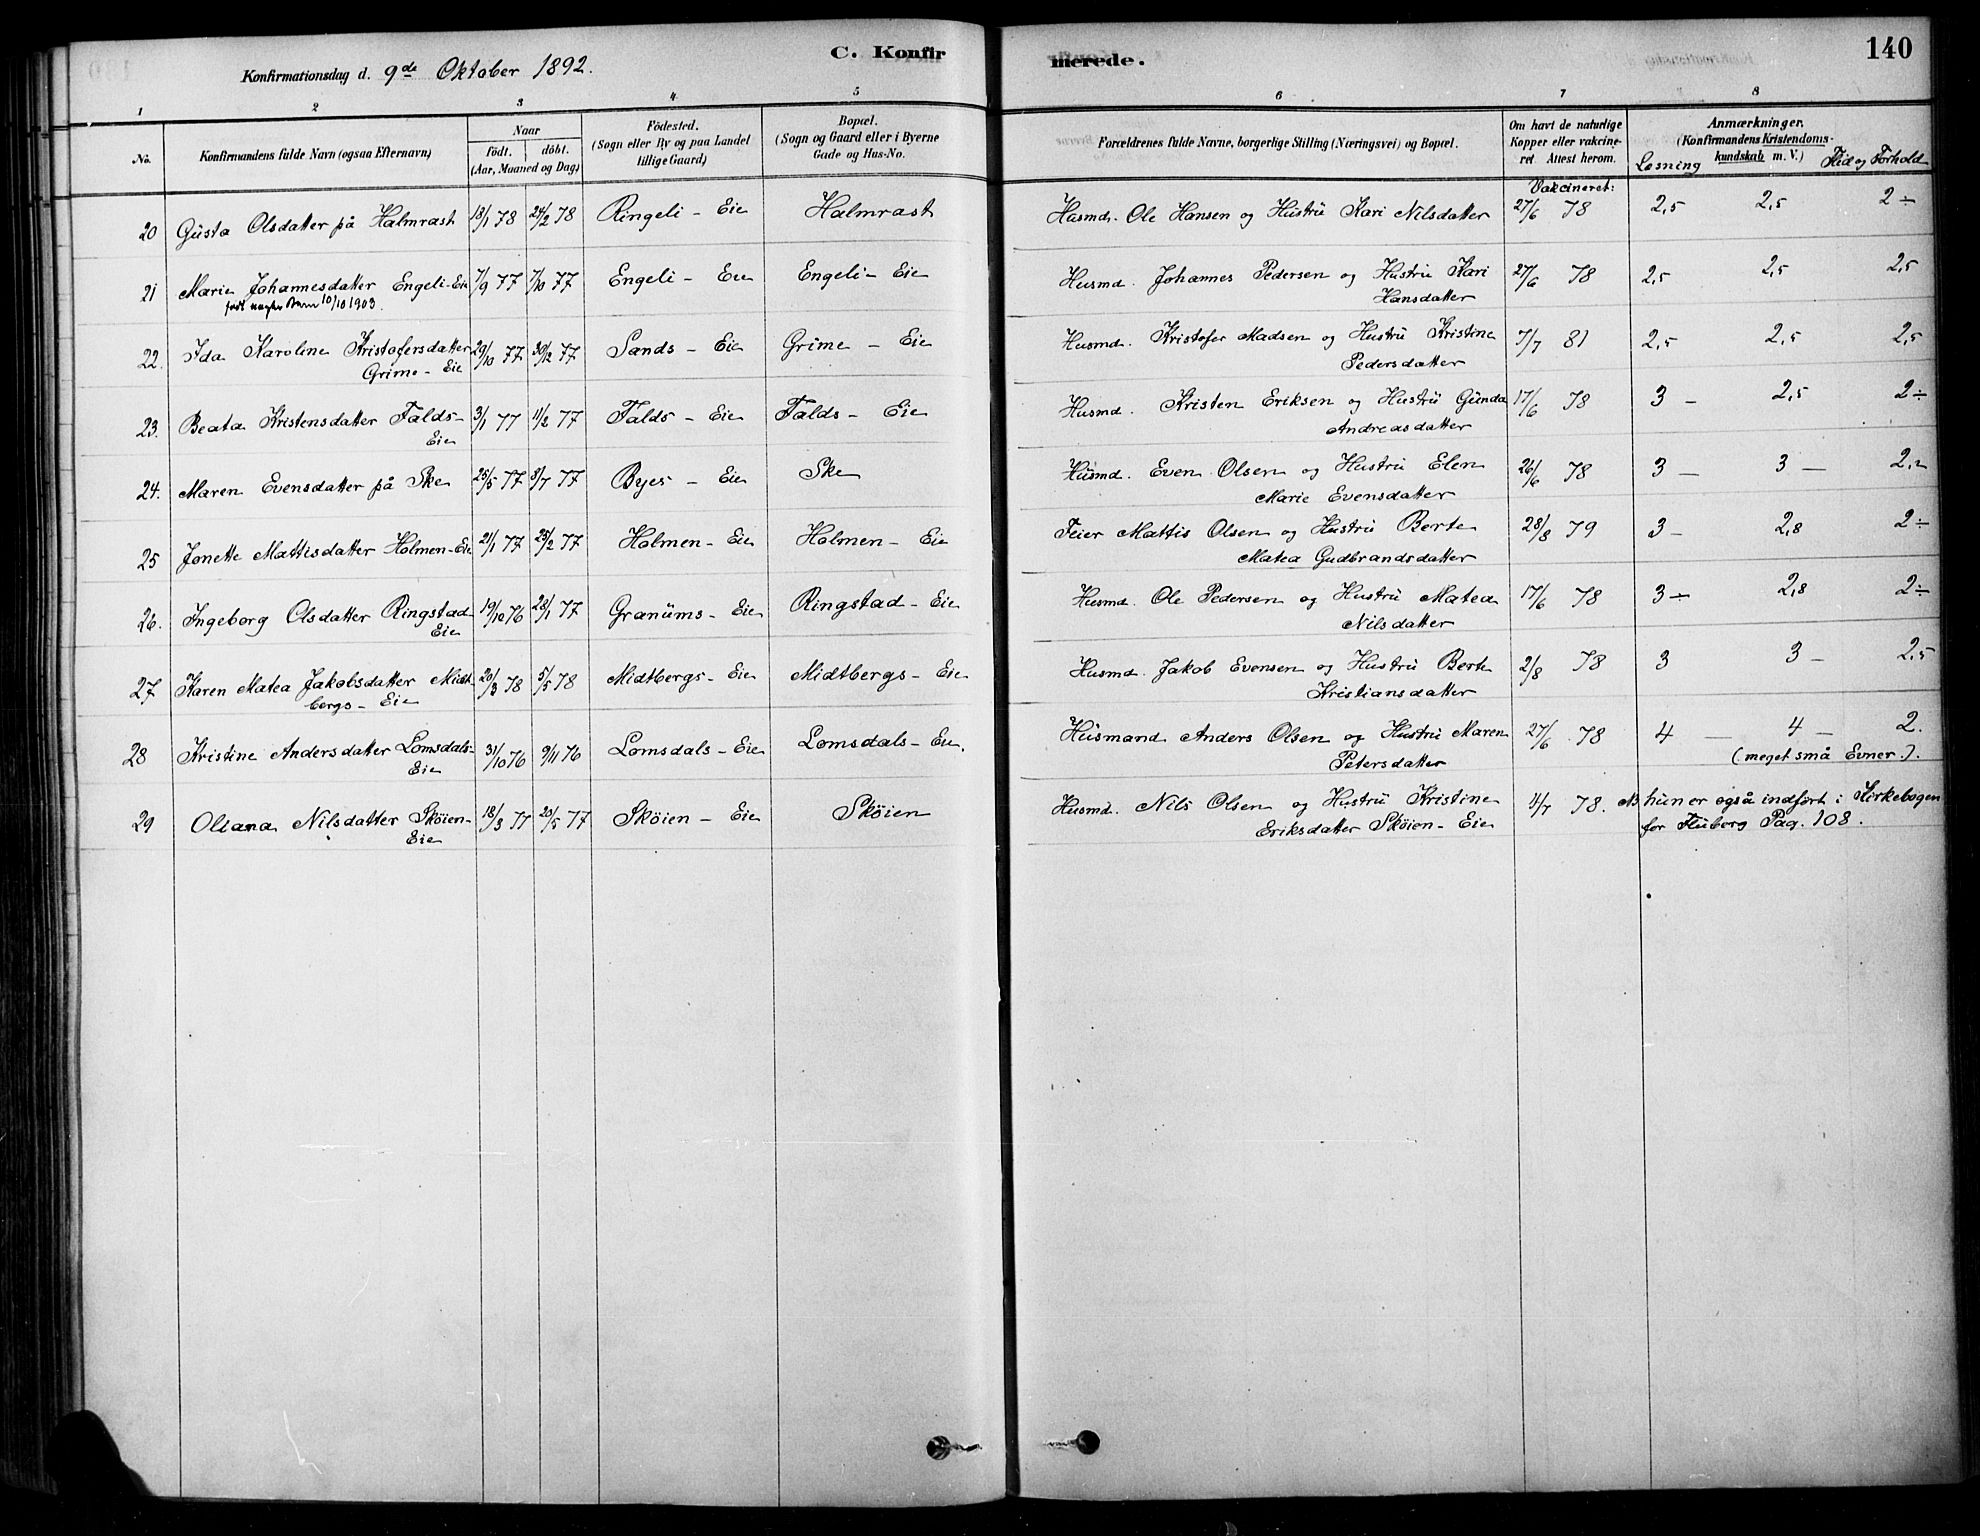 C. Konfirmerede.
140
Konfirmationsdag d. 9de Oktober 1892.
1 2 3 4 5 6 7 8
No.
Konfirmandens fulde Navn (ogsaa Efternavn)
Naar
födt. döbt.
(Aar, Maaned og Dag)
Födested.
(Sogn eller By og paa Landet
tillige Gaard)
Bopæl.
(Sogn og Gaard eller i Byerne
Gade og Hus-No.
Forældrenes fulde Navne, borgerlige Stilling (Næringsvei) og Bopæl.
Om havt de naturlige
Kopper eller vakcine-
ret. Attest herom.
Anmærkninger.
(Konfirmandens Kristendoms-
kundskab m. V.)
Læsning Flid og Forhold
Vakcineret:
20 Gusta Olsdatter på Halmrast 18/1 78 24/2 78 Ringeli - Eie Halmrast Husmd. Ole Hansen og Hustru Kari Nilsdatter 27/6 78 2,5 2,5 2 ÷
21 Marie Johannesdatter Engeli-Eie 7/9 77 7/10 77 Engeli - Eie Engeli - Eie Husmd. Johannes Pedersen og Hustru Kari 27/6 78 2,5 2,5 2,5
født uægte Barn 10/10 1903. Hansdatter
22. Ida Karoline Kristofersdatter 29/10 77 30/12 77 Sands - Eie Grime - Eie Husmd. Kristofer Madsen og Hustru Kristine 7/7 81 2,5 2,5 2,5
Grime - Eie Pedersdatter
23. Beata Kristensdatter Falds- 3/1 77 11/2 77 Falds - Eie Falds - Eie Husmd. Kristen Eriksen og Hustru Gunda 17/6 78 3 - 2,5 2 ÷
Eie Andreasdatter
24. Maren Evensdatter på Ske 25/5 77 8/7 77 Byes - Eie Ske Husmd. Even Olsen og Hustru Elen 26/6 78 3 - 3 -
Marie Evensdatter
25 Jonette Mattisdatter Holmen-Eie 21/1 77 25/2 77 Holmen - Eie Holmen - Eie Feier Mattis Olsen og Hustru Berte 28/8 79 3 - 2,8 2 ÷
Matea Gudbrandsdatter
26. Ingeborg Olsdatter Ringstad- 19/10 76 28/1 77 Granums - Eie Ringstad - Eie Husmd. Ole Pedersen og Hustru Matea 17/6 78 3 ÷ 2,8 2 ÷
Eie Nilsdatter
27 Karen Matea Jakobsdatter Midt- 20/3 78 5/5 78 Midtbergs - Eie Midtbergs - Eie Husmd. Jakob Evensen og Hustru Berte 2/8 78 3 3 - 2,5
bergs - Eie Kristiansdatter
28 Kristine Andersdatter Lomsdals- 31/10 76 9/11 76 Lomsdals - Eie Lomsdals - Eie. Husmand Anders Olsen og Hustru Maren 27/6 78 4 - 4 - 2.
Eie Petersdatter (meget små Evner.).
29 Oleana Nilsdatter Sköien- 18/3 77 20/5 77 Sköien - Eie Sköien Husmd. Nils Olsen og Hustru Kristine 4/7 78. NB hun er også indført i Kirkebogen
Eie Eriksdatter Sköien - Eie for Fluberg Pag. 108.